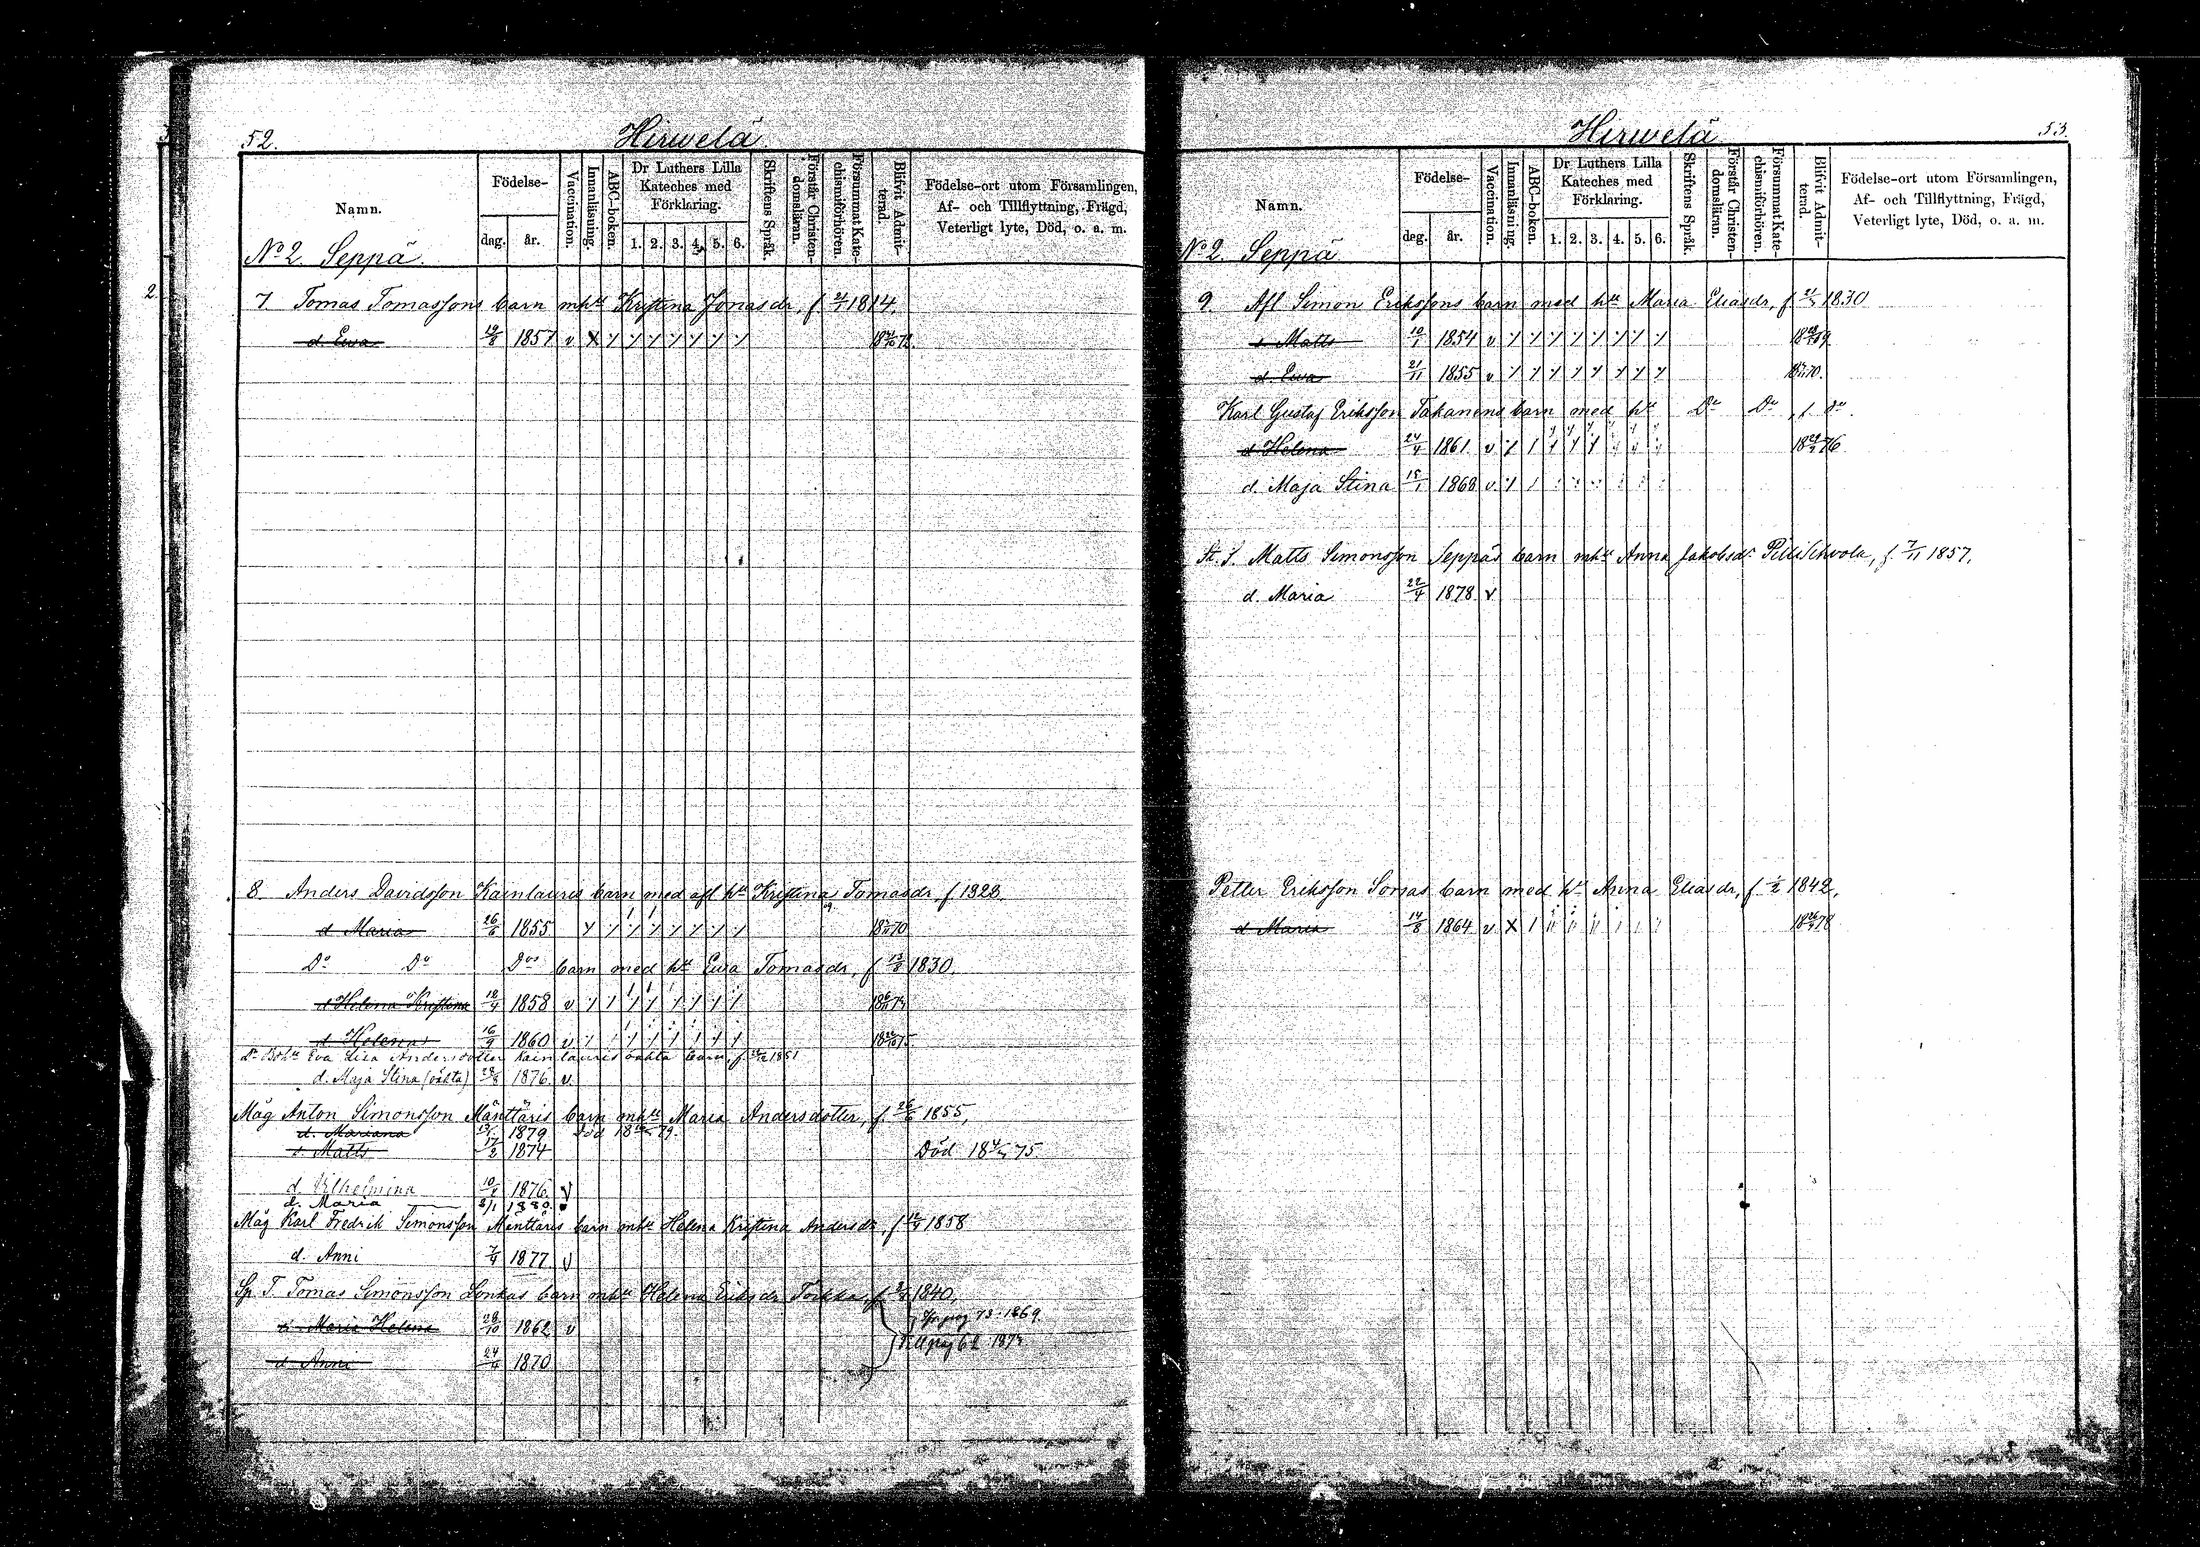 52.
Hirwelä
Namn.
Födelse-
dag.
år.
Vaccination.
Innanläsning.
ABC-boken.
Dr Luthers Lilla Kateches med Förklaring.
1. 2. 3. 4. 5. 6.
Skriftens Språk.
Förstår Christen-domsläran.
Försummat Kate-chismiförhören.
Blifvit Admit-terad.
Födelse-ort utom Församlingen, Af- och Tillflyttning, Frägd, Veterligt lyte, Död, o. a. m.
No 2. Seppä.
7. Tomas Tomassons barn mhu Kristina Jonasdr, f 1814.
d. Ewa 19/8 1857 v
8 Anders Davidsson Kainlauris barn med afl hu Kristina Tomasdr, f 1828.
d Maria 26/6 1855
Do Do Dos barn med hu Ewa Tomasdr, f 13/8 1830.
d Helena Kristina 12/4 1858 v
d Helena 16/9 1860 v
Eva Lisa Andersdotter Kainlauris oäkta barn, f 1851
d. Maja Stina (oäkta) 28/8 1876 v
Måg Anton Simonsson Mänttäris barn mhu Maria Andersdotter, f. 26/6 1855,
d. Mariana 1879 Död
s. Matts 17/2 1874 Död 18 75.
d Vilhelmina 1876 v
d. Maria 3/1 1880.
Måg Karl Fredrik Simonsson Mänttäris barn mhu Helena Kristina Andersdr, f 12/4 1858
d. Anni 7/4 1877 v
Sp. T. Tomas Simonsson Lonkas barn mhu Helena Eriksdr f 1840,
Fr. pag 73. 1869.
d. Maria Helena 28/10 1862 v
Till pag 62 187
d Anni 24/4 1870
53.
Hirwelä
Namn.
Födelse-
dag.
år.
Vaccination.
Innanläsning.
ABC-boken.
Dr Luthers Lilla Kateches med Förklaring.
1. 2. 3. 4. 5. 6.
Skriftens Språk.
Förstår Christen-domsläran.
Försummat Kate-chismiförhören.
Blifvit Admit-terad.
Födelse-ort utom Församlingen, Af- och Tillflyttning, Frägd, Veterligt lyte, Död, o. a. m.
No 2. Seppä
9. Afl Simon Erikssons barn med hu Maria Eliasdr, f 1830
s. Matts 10/1 1854 v
d. Ewa 21/11 1855 v
Karl Gustaf Eriksson Takanens barn med hu Do Do, f do.
d Helena 24/4 1861 v
d. Maja Stina 1868 v
St. S. Matts Simonsson Seppäs barn mhu Anna Jakobsdr f 7/11 1857.
d. Maria 22/4 1878 v
Petter Eriksson Somas barn med hu Anna Eliasdr, f. 1/2 1842,
d Maria 14/8 1864 v